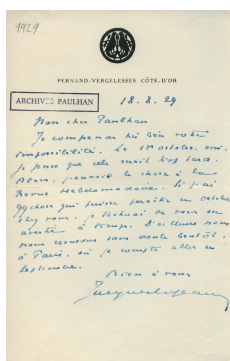 1929
PERNAND-VERGELESSES CÔTE-D'OR
ARCHIVES PAULHAN
18.8.29
Mon cher Paulhan
Je comprends très bien votre
impossibilité. Le 1er octobre, oui,
je pense que cela serait trop tard.
Alors, j'envoie la chose à la
Revue hebdomadaire. Si j'ai
qqchose qui puisse paraître en octobre
chez vous, je tâcherai de vous en
avertir à temps. D'ailleurs nous
nous verrons sans doute bientôt,
à Paris, où je compte aller en
septembre.
Bien à vous
Jacques Copeau